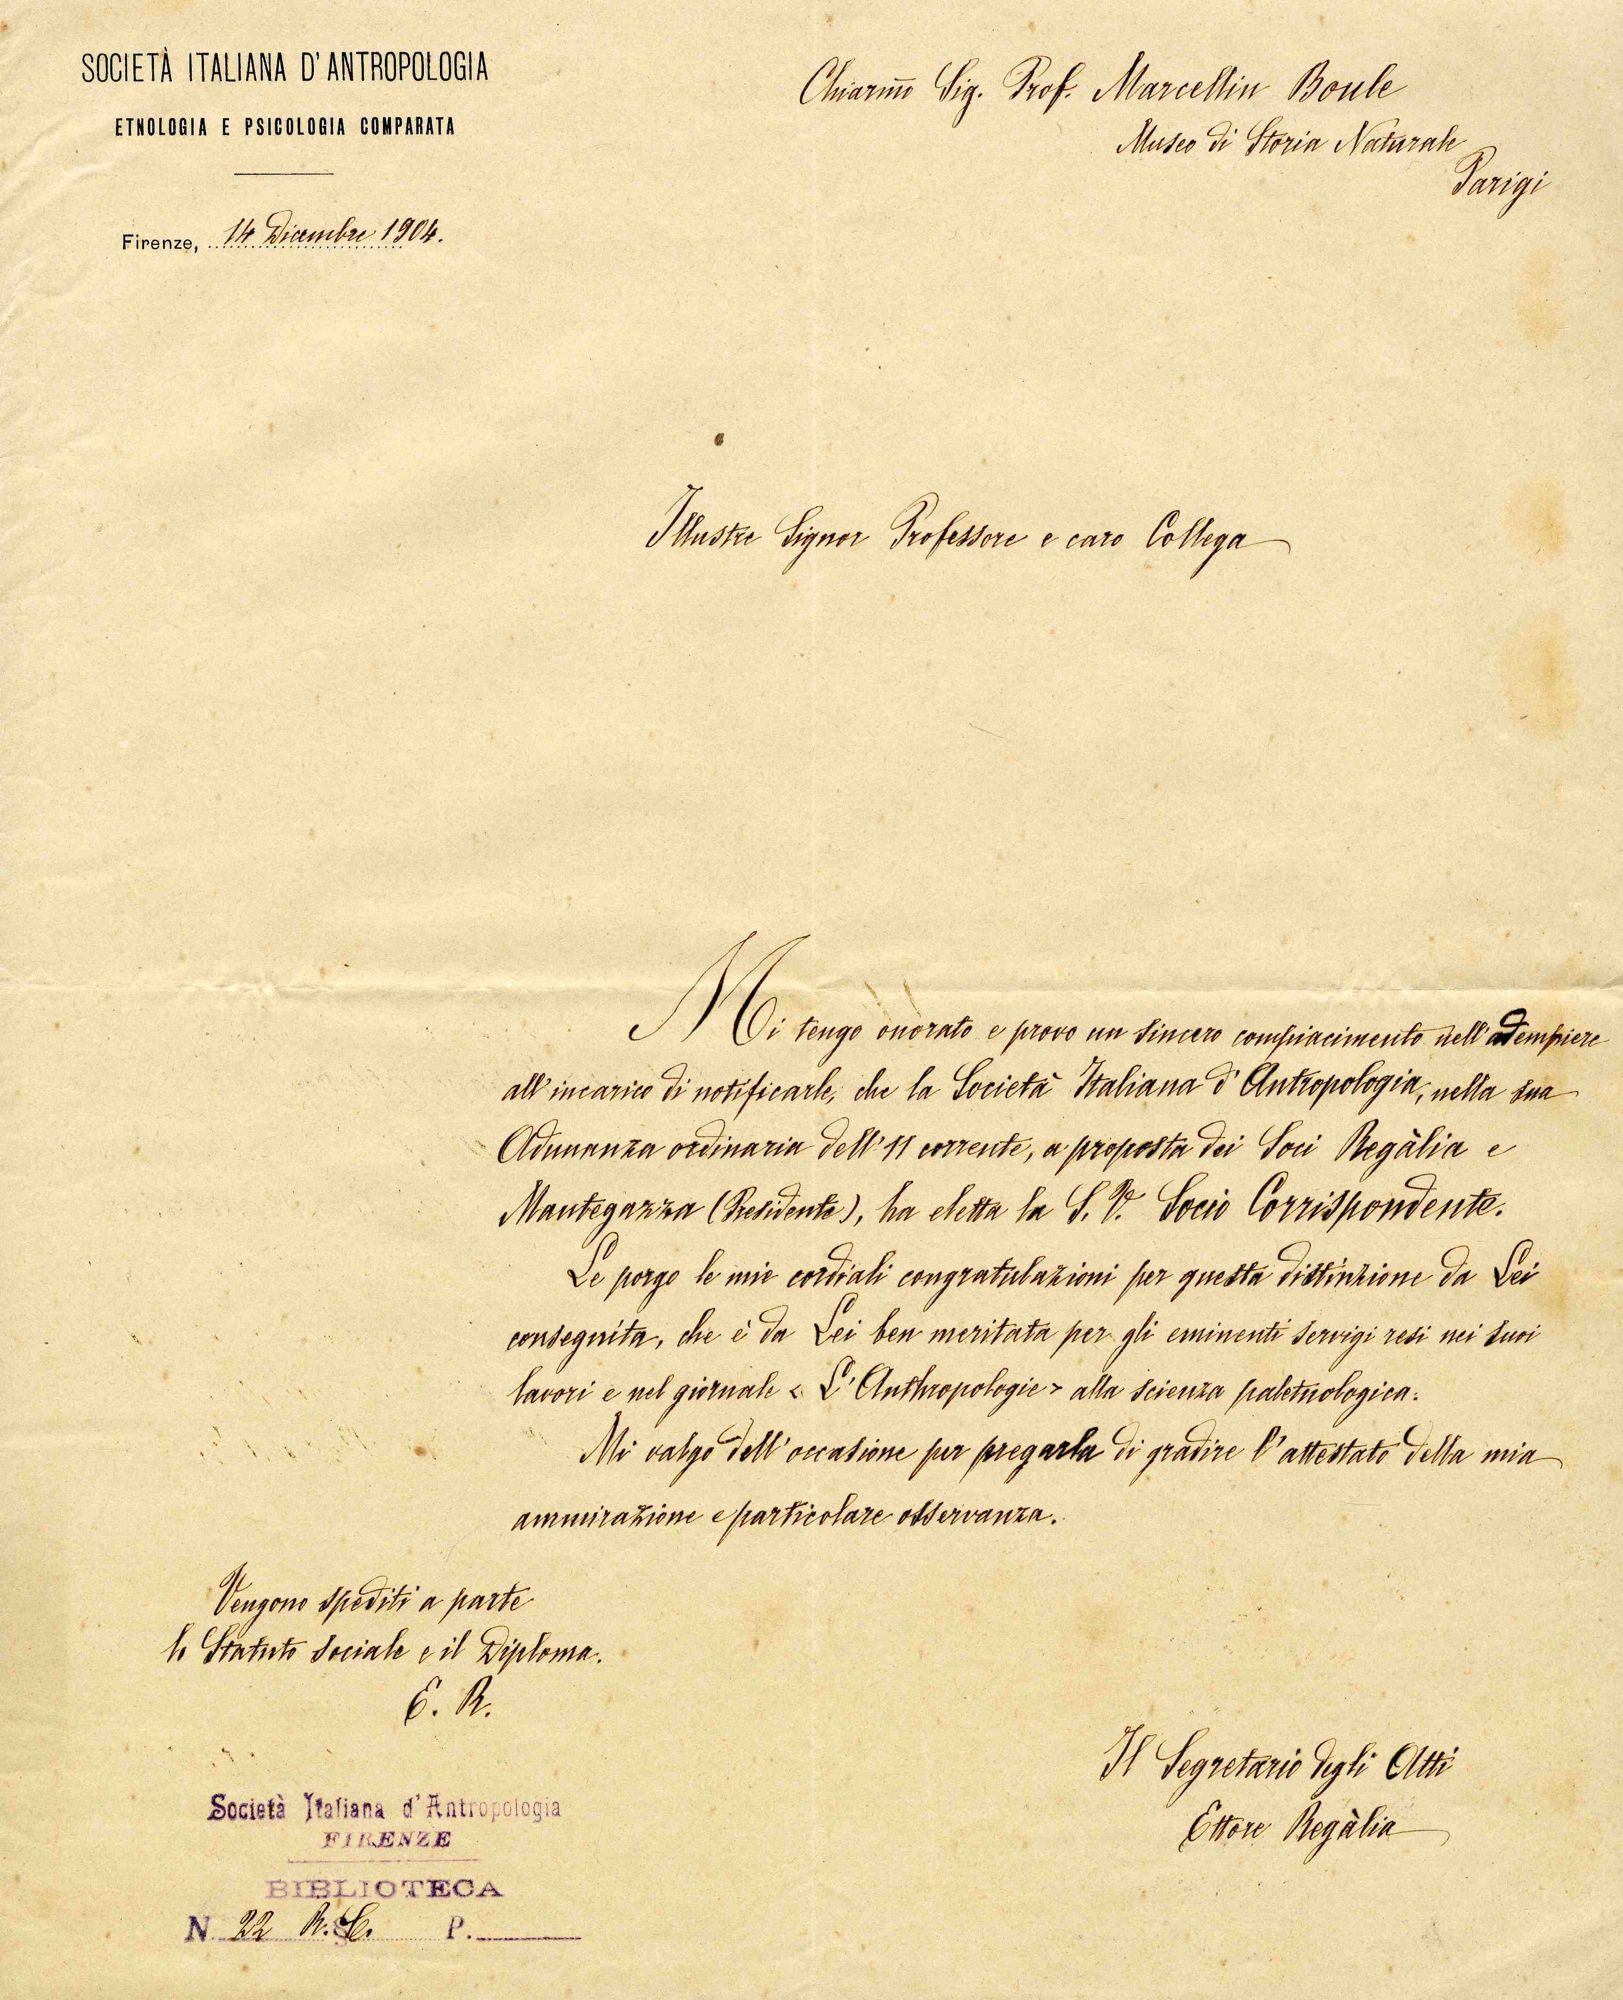 SOCIETÀ ITALIANA D'ANTROPOLOGIA
ETNOLOGIA E PSICOLOGIA COMPARATA
Firenze, 14 Dicembre 1904.
Chiarmo Sig. Prof. Marcellin Boule
Museo di Storia Naturale
Parigi
Illustre Signor Professore e caro Collega
Mi tengo onorato e provo un sincero compiacimento nell'adempiere
all'incarico di notificarle, che la Società Italiana d'Antropologia, nella sua
Adunanza ordinaria dell'11 corrente, a proposta dei Soci Regàlia e
Mantegazza (Presidente), ha eletta la S. V. Socio Corrispondente.
Le porgo le mie cordiali congratulazioni per questa distinzione da Lei
conseguita, che è da Lei ben meritata per gli eminenti servigi resi nei suoi
lavori e nel giornale « L'Anthropologie » alla scienza paletnologica.
Mi valgo dell'occasione per pregarla di gradire l'attestato della mia
ammirazione e particolare osservanza.
Vengono spediti a parte
lo Statuto sociale e il Diploma.
E. R.
Il Segretario degli Atti
Ettore Regàlia
Società Italiana d'Antropologia
FIRENZE
BIBLIOTECA
N. 22 R. C. P.